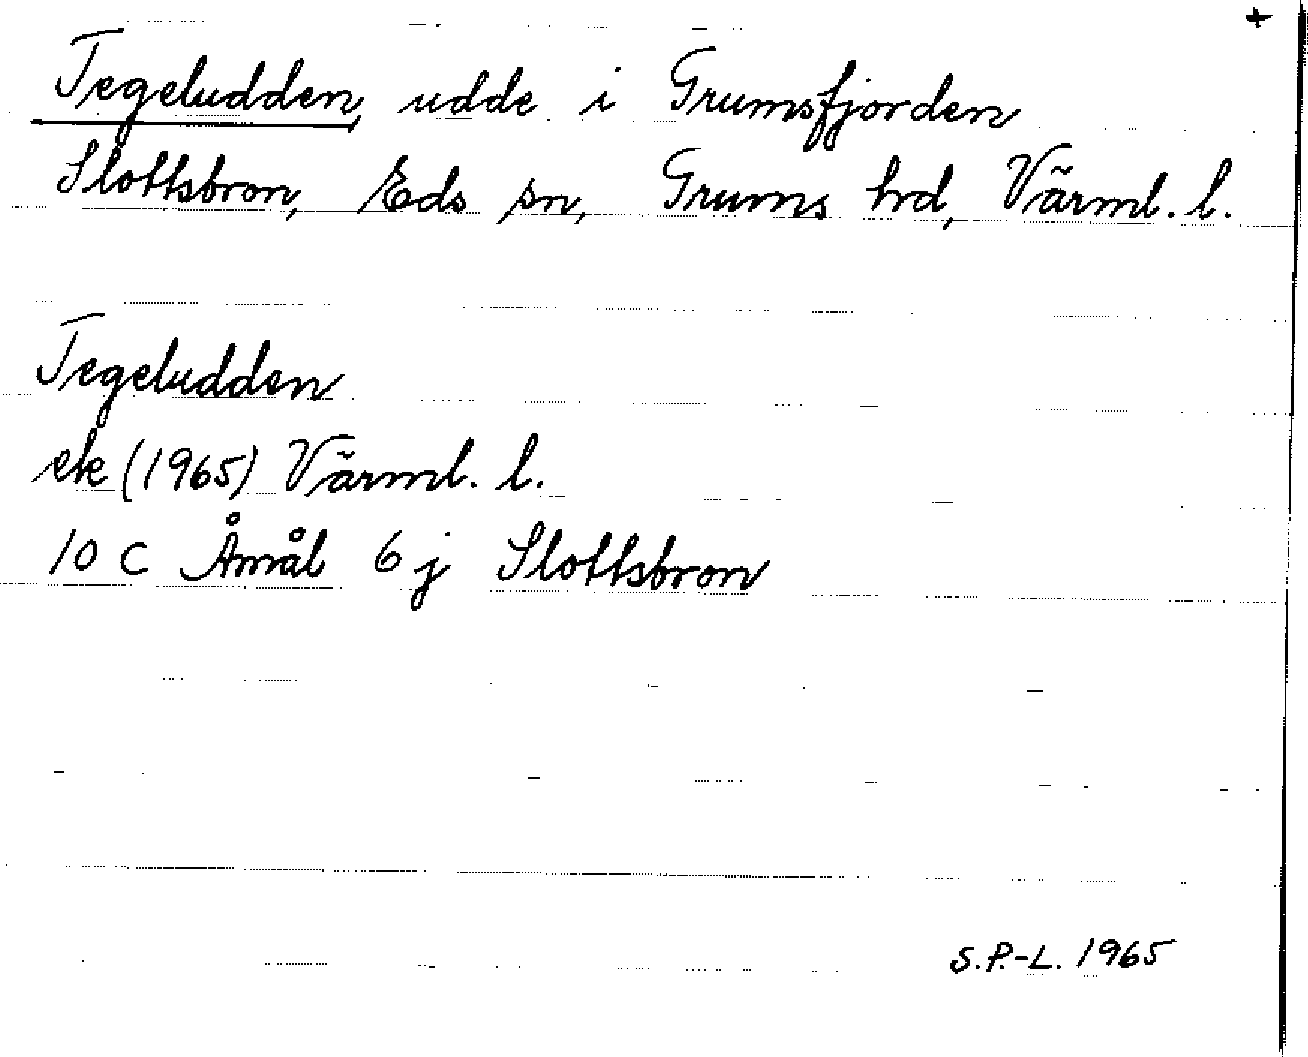 +
Tegeludden, udde i Grumsfjorden
Slottsbron, Eds sn, Grums hd, Värml. l.
Tegeludden
ek (1965) Värml. l.
10 C Åmål 6 j Slottsbron
S.P.-L. 1965